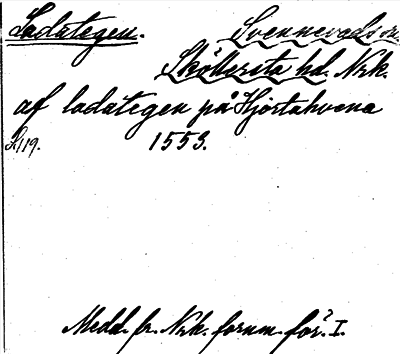 Ladategen. Svennevads sn
Sköllersta hd. Nrk.
af ladategen på Hjortahvena
L119. 1553.
Medd. fr. Nrk. fornm. för. I.